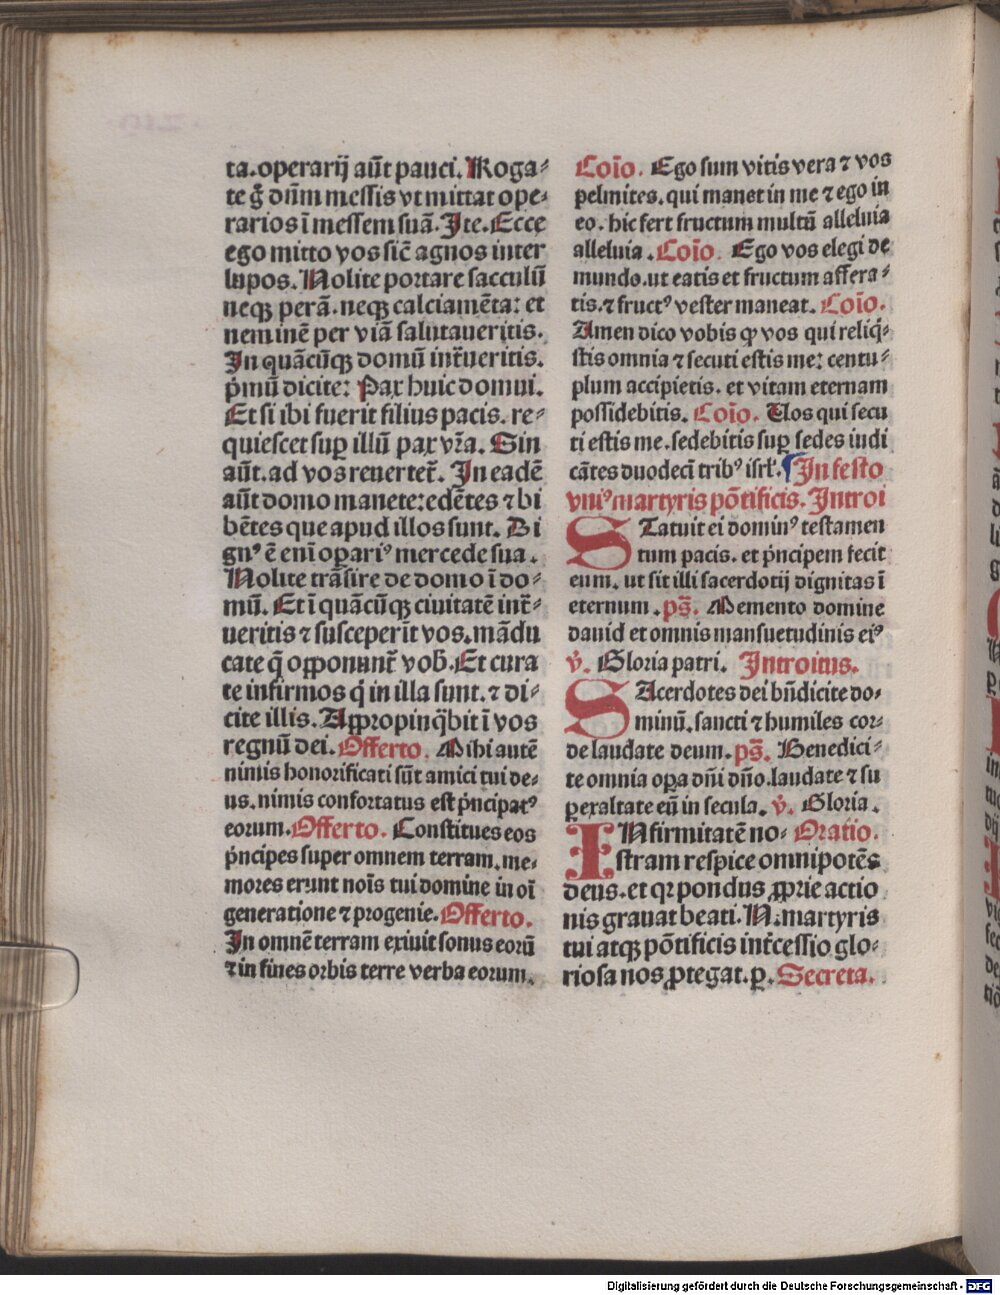 ta. operarij aūt pauci. Roga⸗
te g̃ dn̄m messis vt mittat ope⸗
rarios ī messem suā. Ite. Ecce
ego mitto vos sic̄ agnos inter
lupos. Nolite portare sacculū
neqꝫ perā. neqꝫ calciamēta: et
neminē per viā salutaueritis.
In quācūqꝫ domū int̄ueritis.
p̄mū dicite: Pax huic domui.
Et si ibi fuerit filius pacis. re⸗
quiescet suꝑ illū pax vr̄a. Sin
aūt. ad vos reuertet̄. In eadē
aūt domo manete: edētes ⁊ bi
bētes que apud illos sunt. Di
gnꝰ ē eni opariꝰ mercede sua.
Nolite trāsire de domo ī do⸗
mū. Et ī quācūqꝫ ciuitatē int̄⸗
ueritis ⁊ susceperīt vos. mādu
cate q̄ opponunt̄ vob̄. Et cura
te infirmos q̇ in illa sunt. ⁊ di⸗
cite illis. Appropinq̄bit ī vos
regnū dei. Offerto. Mihi autē
nimis honorificati sūt amici tui de⸗
us. nimis confortatus est p̄ncipatꝰ
eorum. Offerto. Constitues eos
p̄ncipes super omnem terram. me⸗
mores erunt noīs tui domine in oī
generatione ⁊ progenie. Offerto.
In omnē terram exiuit sonus eorū
⁊ in fines orbis terre verba eorum.
Coīo. Ego sum vitis vera ⁊ vos
pelmites. qui manet in me ⁊ ego in
eo. hic fert fructum multū alleluia
alleluia. Coīo. Ego vos elegi de
mundo. ut eatis et fructum affera⸗
tis. ⁊ fructꝰ vester maneat. Coīo.
Amen dico vobis ꝙ vos qui reliq̇⸗
stis omnia ⁊ secuti estis me: centu⸗
plum accipietis. et vitam eternam
possidebitis. Coīo. Uos qui secu
ti estis me. sedebitis suꝑ sedes iudi
cātes duodecī tribꝰ isrl̄. In festo
vniꝰ martyris pōtificis. Introi
STatuit ei dominꝰ testamen
tum pacis. et p̄ncipem fecit
eum. ut sit illi sacerdotij dignitas ī
eternum. ps̄. Memento domine
dauid et omnis mansuetudinis eiꝰ
v̄. Gloria patri. Introitus.
SAcerdotes dei bn̄dicite do⸗
minū. sancti ⁊ humiles cor⸗
de laudate deum. ps̄. Benedici⸗
te omnia oꝑa dn̄i dn̄o. laudate ⁊ su
ꝑexaltate eū in secula. v̄. Gloria.
INfirmitatē no⸗ Oratio.
stram respice omnipotēs
deus. et qꝛ pondus ꝓprie actio
nis grauat beati. N. martyris
tui atqꝫ pōtificis int̄cessio glo⸗
riosa nos ꝓtegat. ꝑ. Secreta.
Digitalisierung gefördert durch die Deutsche Forschungsgemeinschaft - DFG